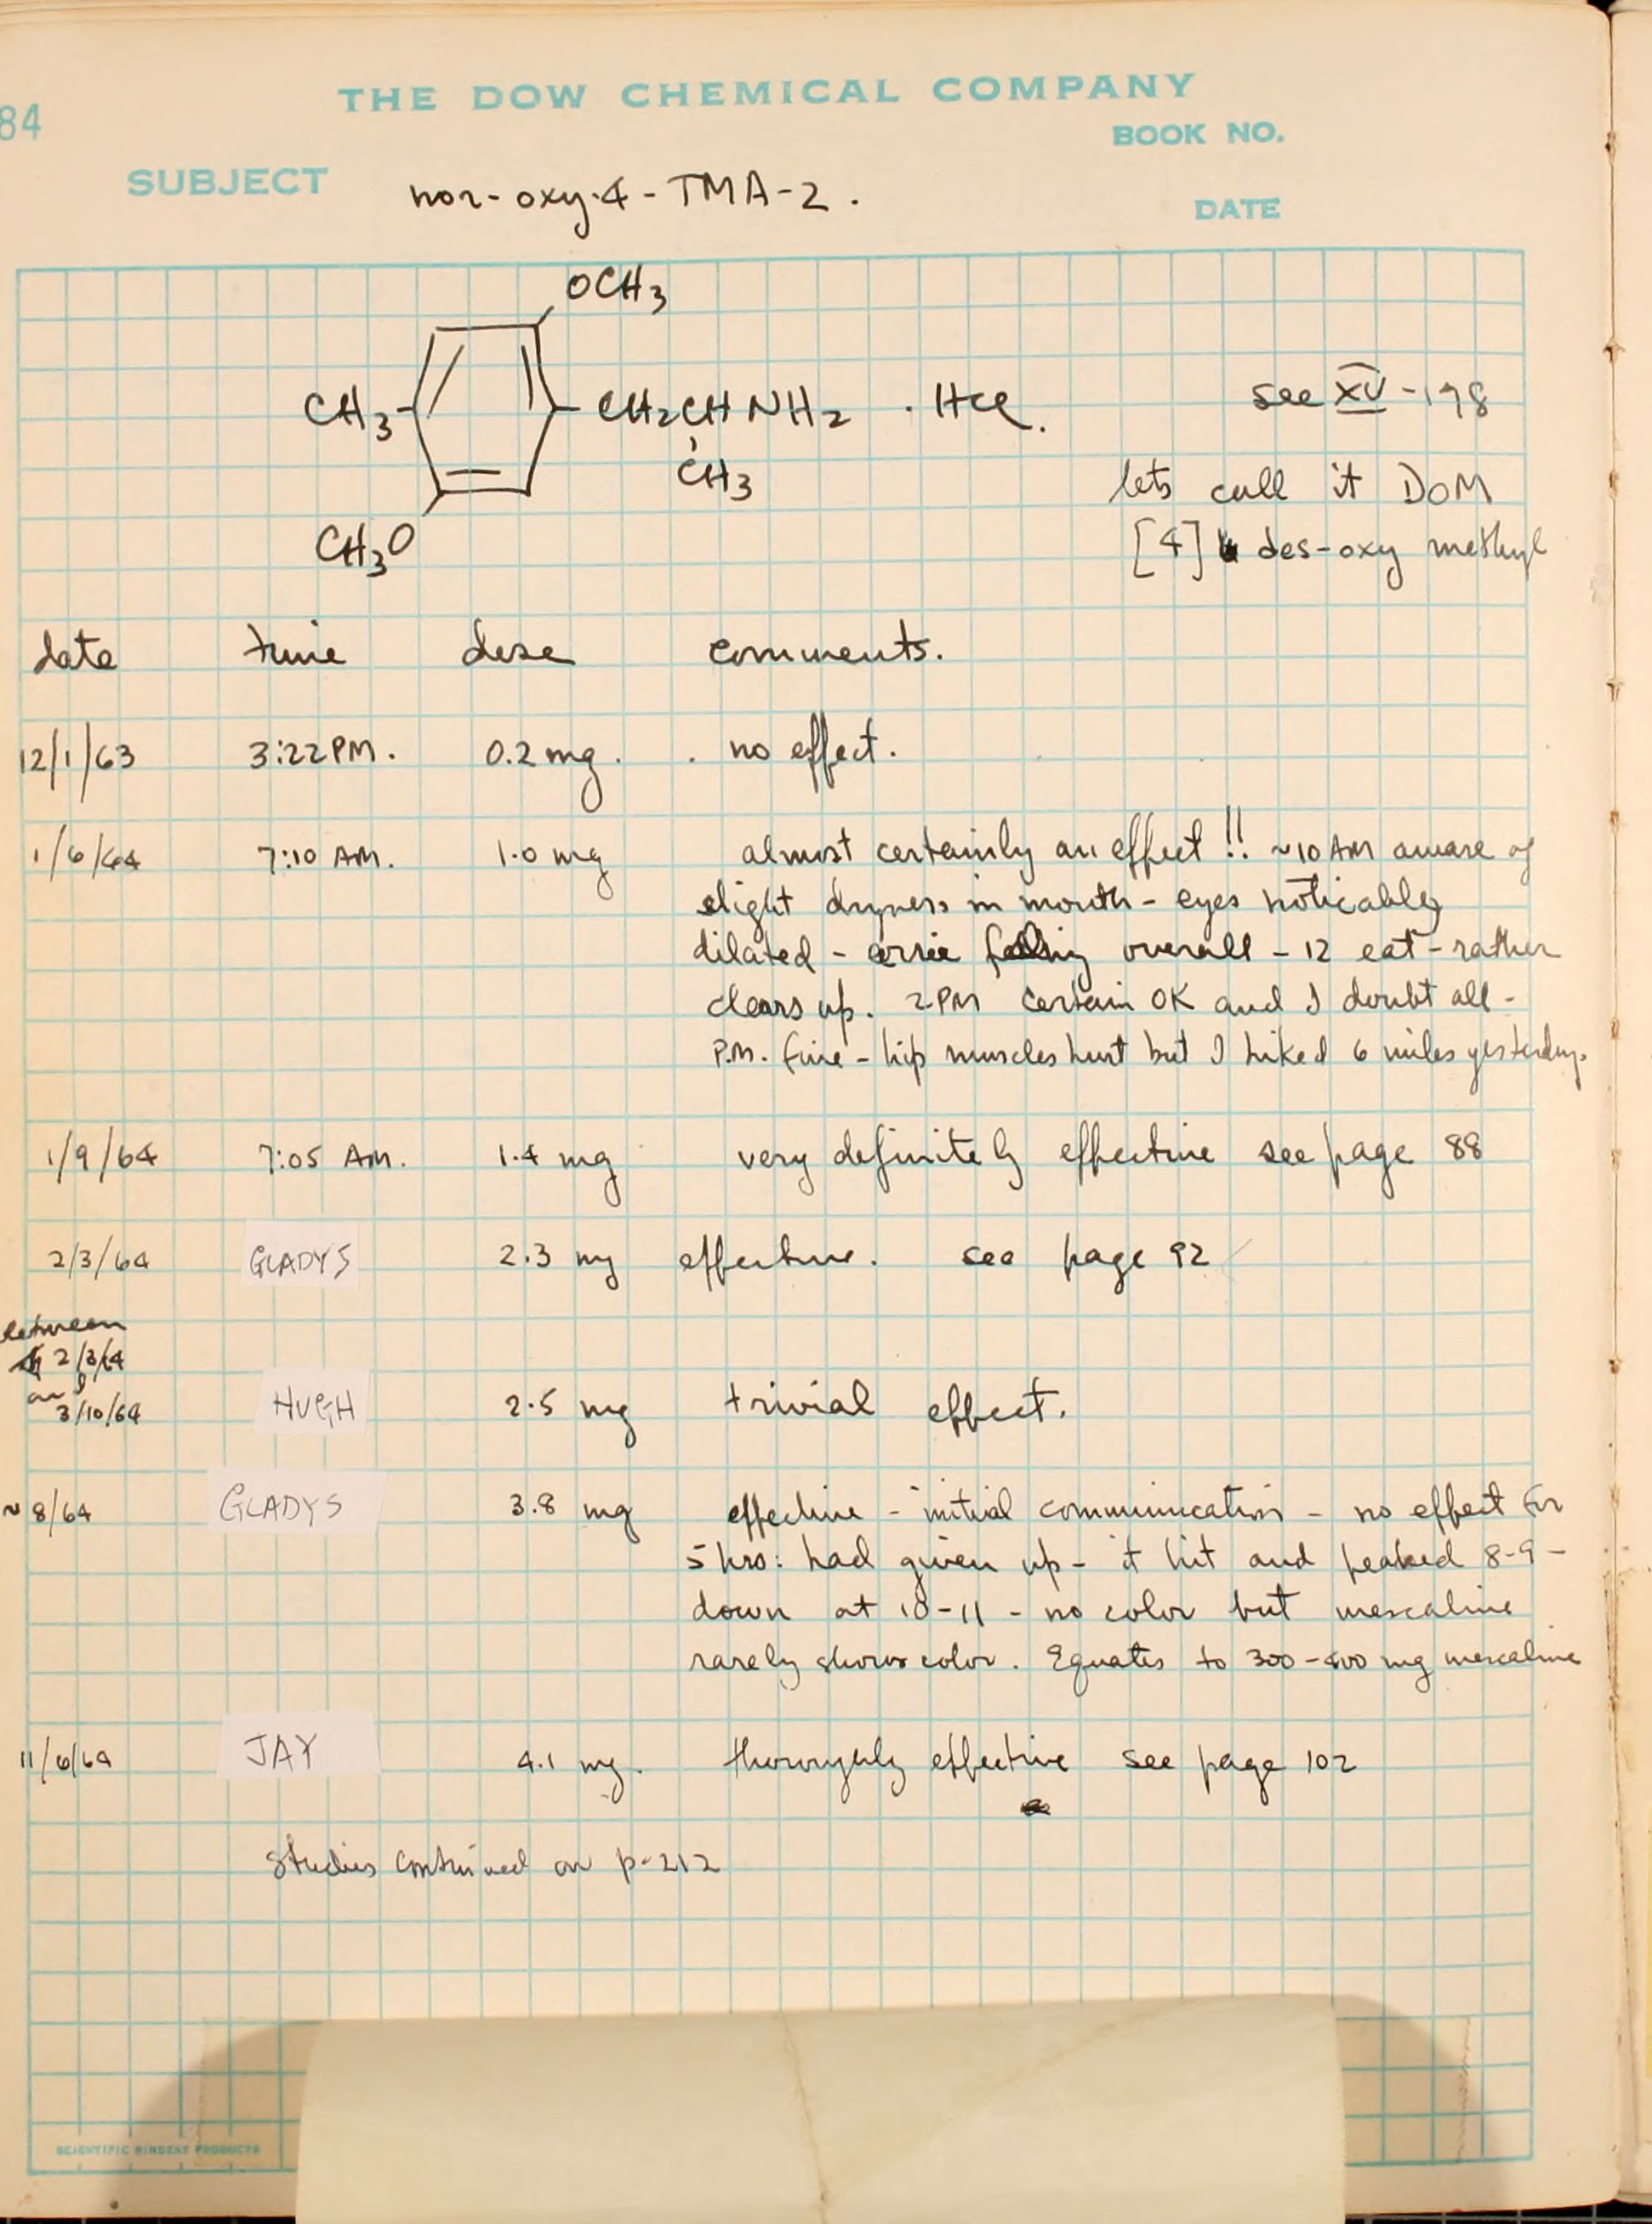 84
THE DOW CHEMICAL COMPANY
BOOK NO.
SUBJECT nor-oxy-4-TMA-2.
DATE
OCH3
CH3 CH2CHNH2 · HCl.
CH3
CH3O
see XV-198
lets call it DOM
[4] des-oxy methyl
date time dose comments.
12/1/63 3:22 PM. 0.2 mg. no effect.
1/6/64 7:10 AM. 1.0 mg almost certainly an effect!! ~10 AM aware of
slight dryness in mouth - eyes noticably
dilated - feeling overall - 12 eat - rather
clears up. 2PM certain OK and I doubt all -
P.M. fine - hip muscles hurt but I hiked 6 miles yesterday.
1/9/64 7:05 AM. 1.4 mg very definitely effective see page 88
2/3/64 GLADYS 2.3 mg effective. see page 92
between
2/3/64
and
3/10/64 HUGH 2.5 mg trivial effect.
~8/64 GLADYS 3.8 mg effective - initial communication - no effect for
5 hrs: had given up - it hit and peaked 8-9 -
down at 10-11 - no color but mescaline
rarely shows color. Equates to 300-400 mg mescaline
11/6/64 JAY 4.1 mg. thoroughly effective see page 102
Studies continued on p-212
SCIENTIFIC BINDERY PRODUCTS